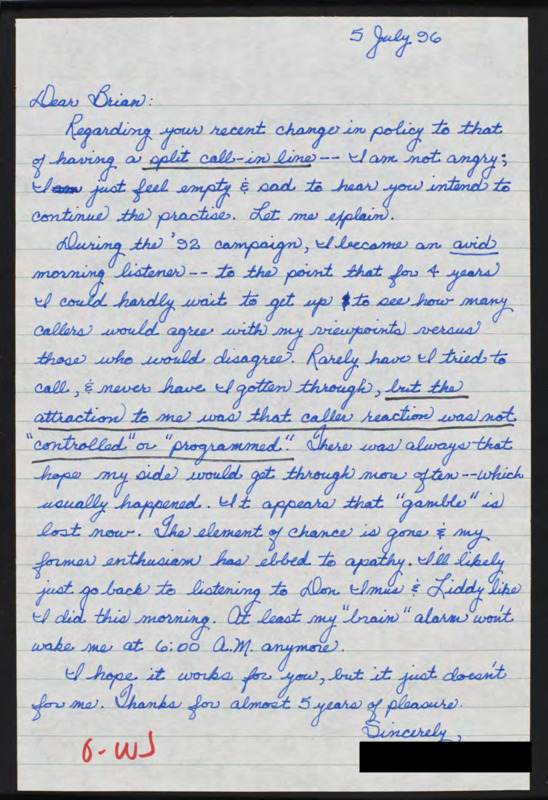 5 July 96
Dear Brian:
Regarding your recent change in policy to that
of having a split call-in line -- I am not angry;
I am just feel empty & sad to hear you intend to
continue the practise. Let me explain.
During the '92 campaign, I became an avid
morning listener -- to the point that for 4 years
I could hardly wait to get up to see how many
callers would agree with my viewpoints versus
those who would disagree. Rarely have I tried to
call, & never have I gotten through, but the
attraction to me was that caller reaction was not
"controlled" or "programmed". There was always that
hope my side would get through more often -- which
usually happened. It appears that "gamble" is
lost now. The element of chance is gone & my
former enthusiasm has ebbed to apathy. I'll likely
just go back to listening to Don Imus & Liddy like
I did this morning. At least my "brain" alarm won't
wake me at 6:00 A.M. anymore.
I hope it works for you, but it just doesn't
for me. Thanks for almost 5 years of pleasure.
Sincerely,
O-WJ